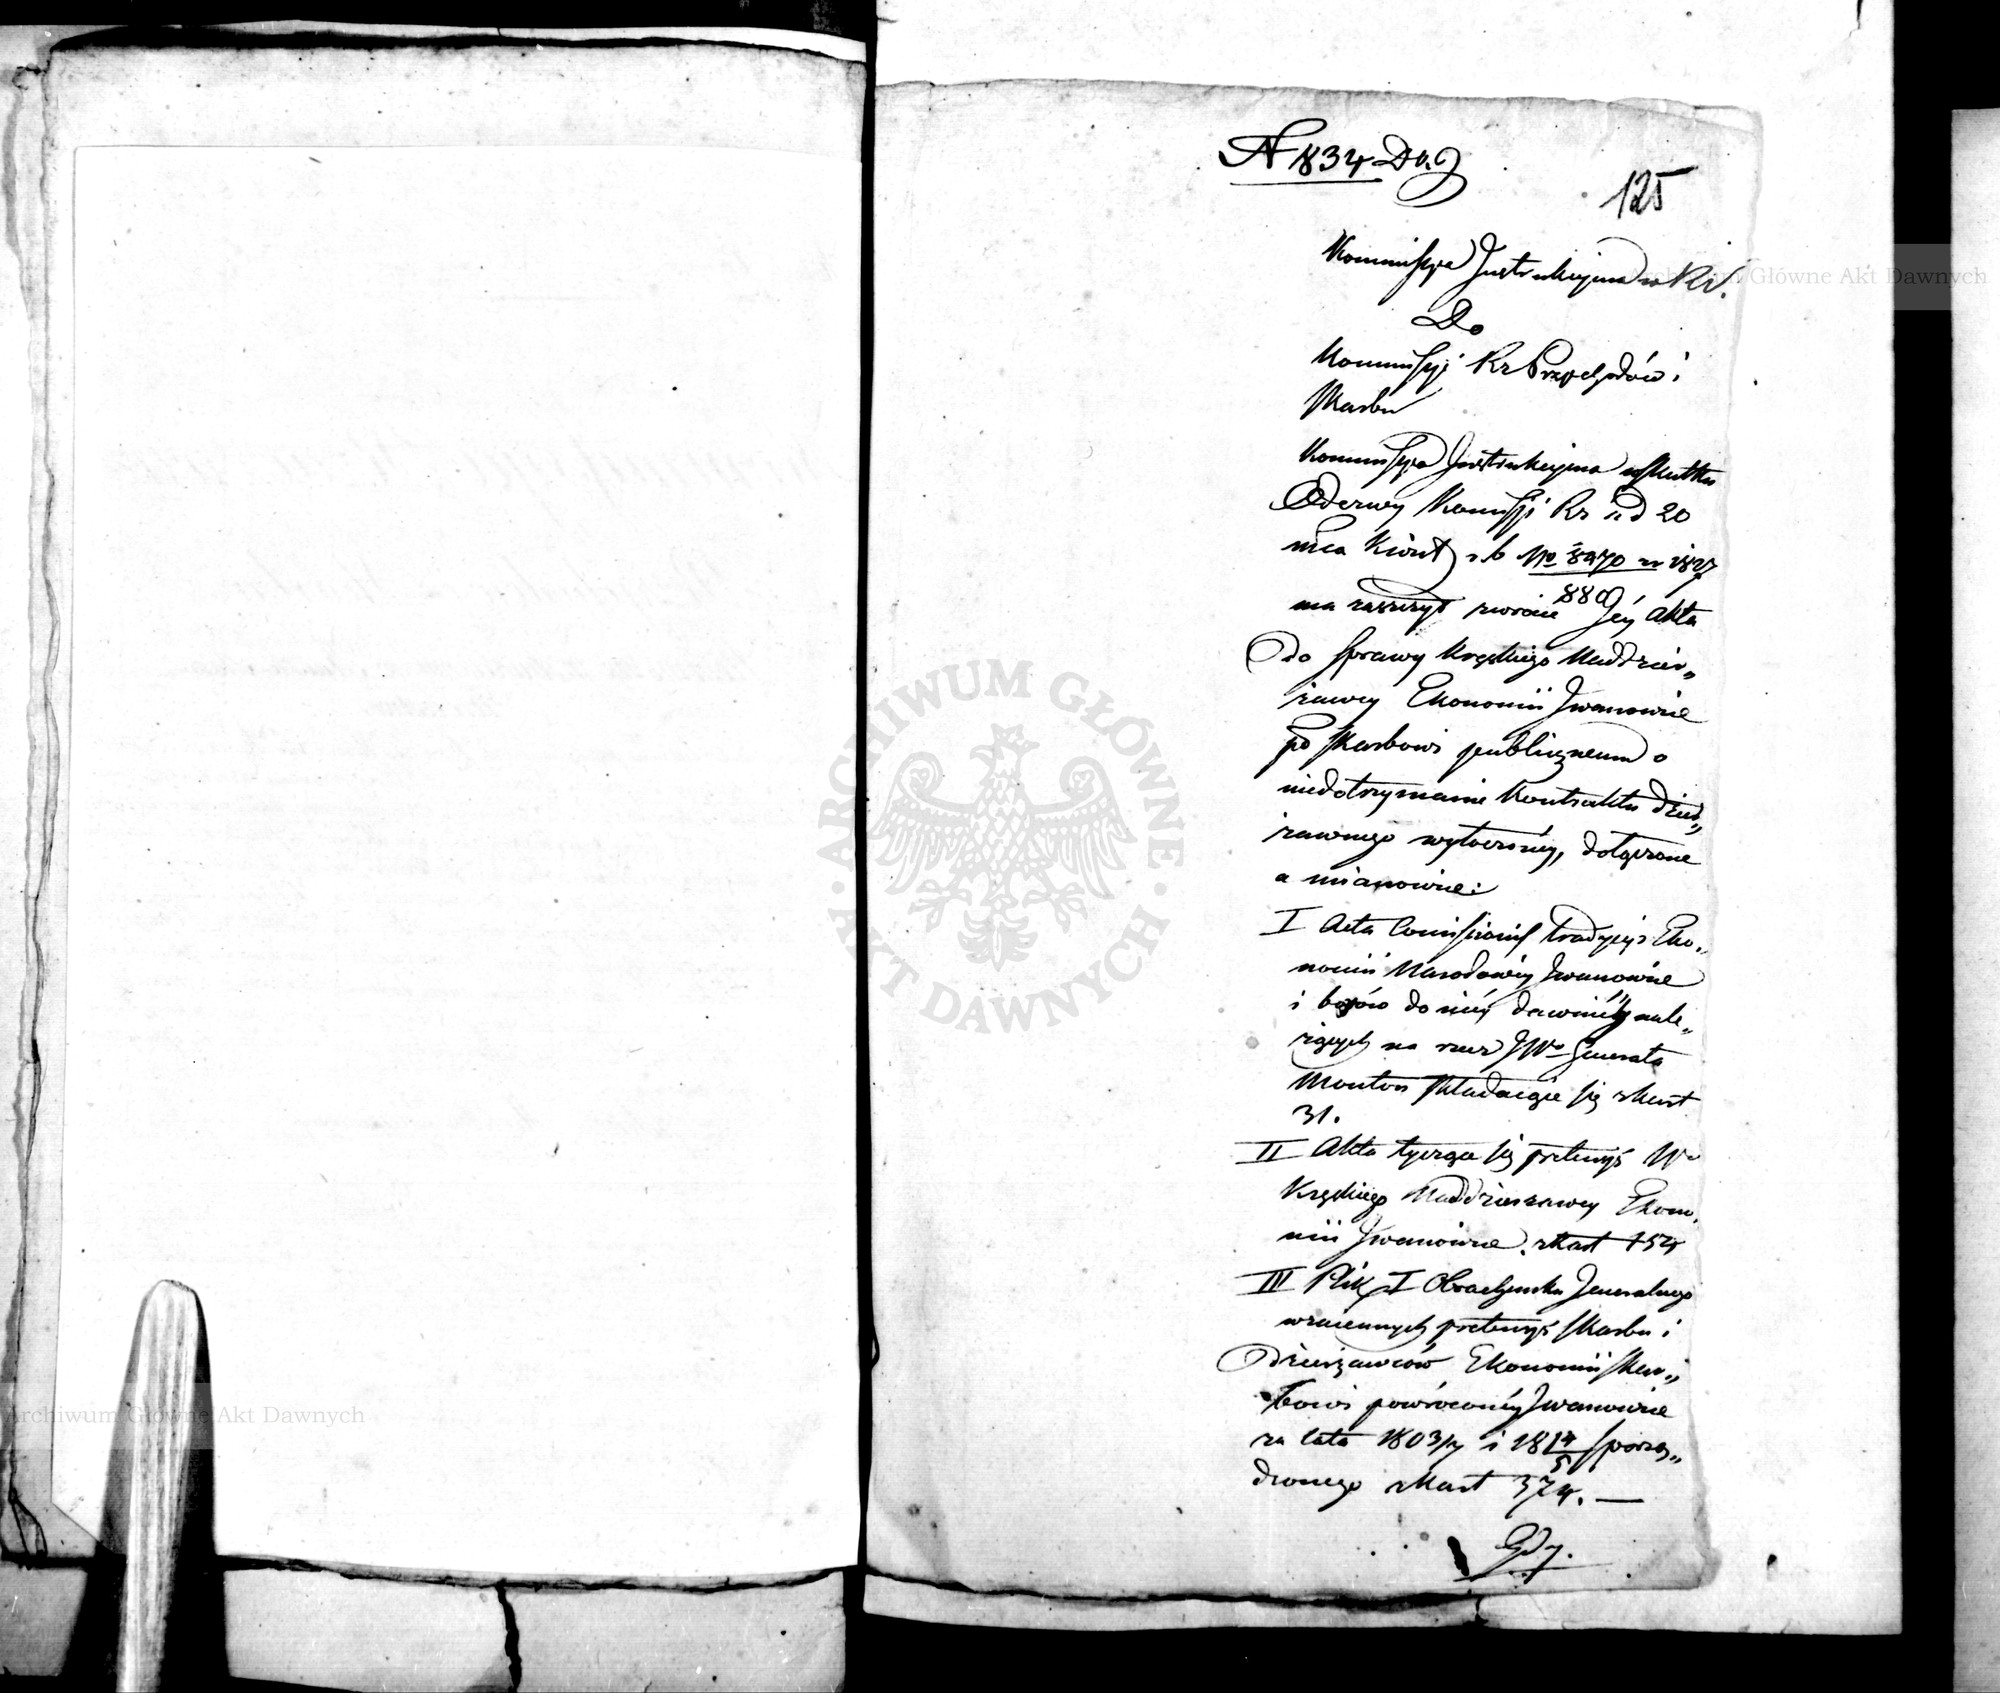 N 1834 Da.
125
Kommissya Instrukcyjna w Kr.
Do
Kommissyi Rz Przychodów i
Skarbu
Kommissya Instrukcyjna wskutku
Odezwy Komissyi Rz i d 20
mca Kwiet r. b No 8270
880
ma zaszczyt zwrócić Jey Akta
do sprawy Kręskiego Naddzier„
żawcy Ekonomii Iwanowice
po Skarbowi publicznemu o
niedotrzymanie Kontraktu dzier„
żawnego wytoczonéy, dołączone
a mianowicie:
I Acta Comissionis tradycyi Eko„
nomii Narodowéy Iwanowice
i borów do niéy dawniéy nale„
żących na rzecz JWo Generała
Mouton składaiące się z kart
31.
II Akta tyczące się pretensyi Wo
Kręskiego Naddzierżawcy Ekono„
mii Iwanowice z kart 154
III Plik I Obrachunku Jeneralnego
wzaiemnych pretensyi Skarbu i
Dzierżawców Ekonomii Skar„
bowi powróconéy Iwanowice
za lata 1803/4 i 1814/5 sporzą„
dzonego z kart 374. —
Gdy.
Archiwum Główne Akt Dawnych
Archiwum Główne Akt Dawnych
· ARCHIWUM GŁÓWNE · AKT DAWNYCH